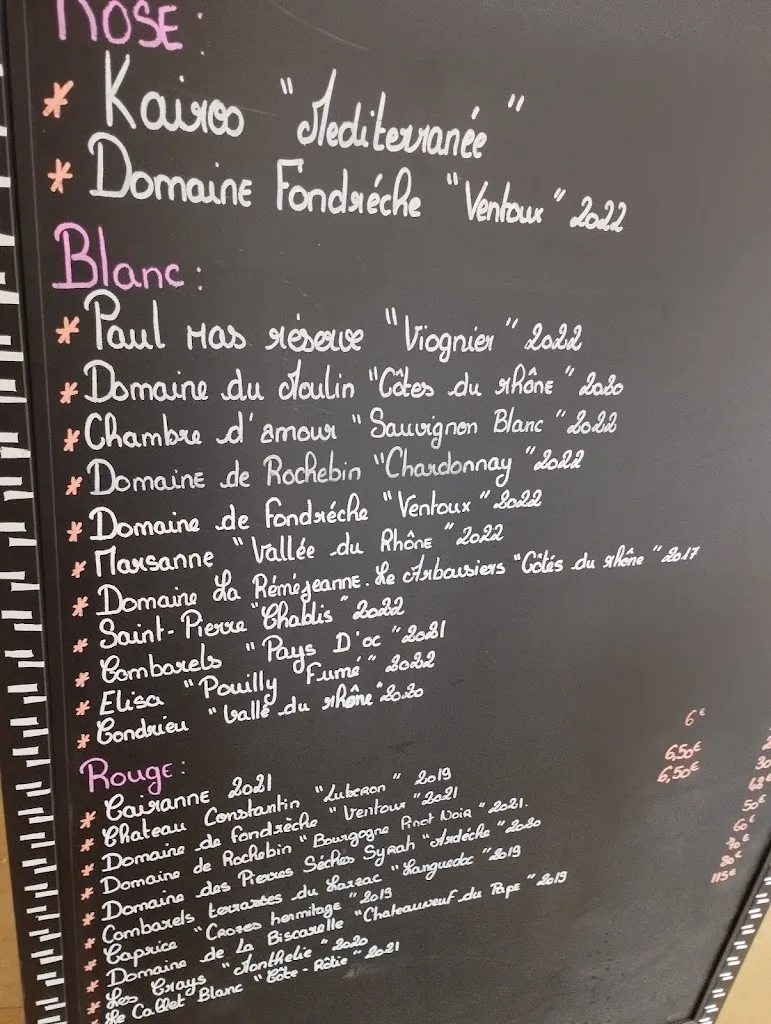 ROSE :
* Kairos "Mediterranée"
* Domaine Fondréche "Ventoux" 2022
Blanc :
* Paul Mas réserve "Viognier" 2022
* Domaine du Moulin "Côtes du rhône" 2020
* Chambre d'amour "Sauvignon Blanc" 2022
* Domaine de Rochebin "Chardonnay" 2022
* Domaine de Fondréche "Ventoux" 2022
* Marsanne "Vallée du Rhône" 2022
* Domaine La Réméjeanne. Le Arbousiers "Côtés du rhône" 2017
* Saint-Pierre "Chablis" 2022
* Combarels "Pays D'oc" 2021
* Elisa "Pouilly Fumé" 2022
* Condrieu "Vallé du rhône" 2020
Rouge :
* Cairanne 2021 6€
* Chateau Constantin "Luberon" 2019
* Domaine de fondrèche "Ventoux" 2021 6,50€
* Domaine de Rochebin "Bourgogne Pinot Noir" 2021. 6,50€
* Domaine des Pierres Sèches Syrah "Ardéche" 2020
* Combarels terrasses du Larzac "Languedoc" 2019
* Caprice "Crozes hermitage" 2019 50€
* Domaine de La Biscarelle "Chateauneuf du Pape" 2019
* Les Crays "Monthelie" 2020 80€
* Le Callet Blanc "Côte-Rôtie" 2021 115€